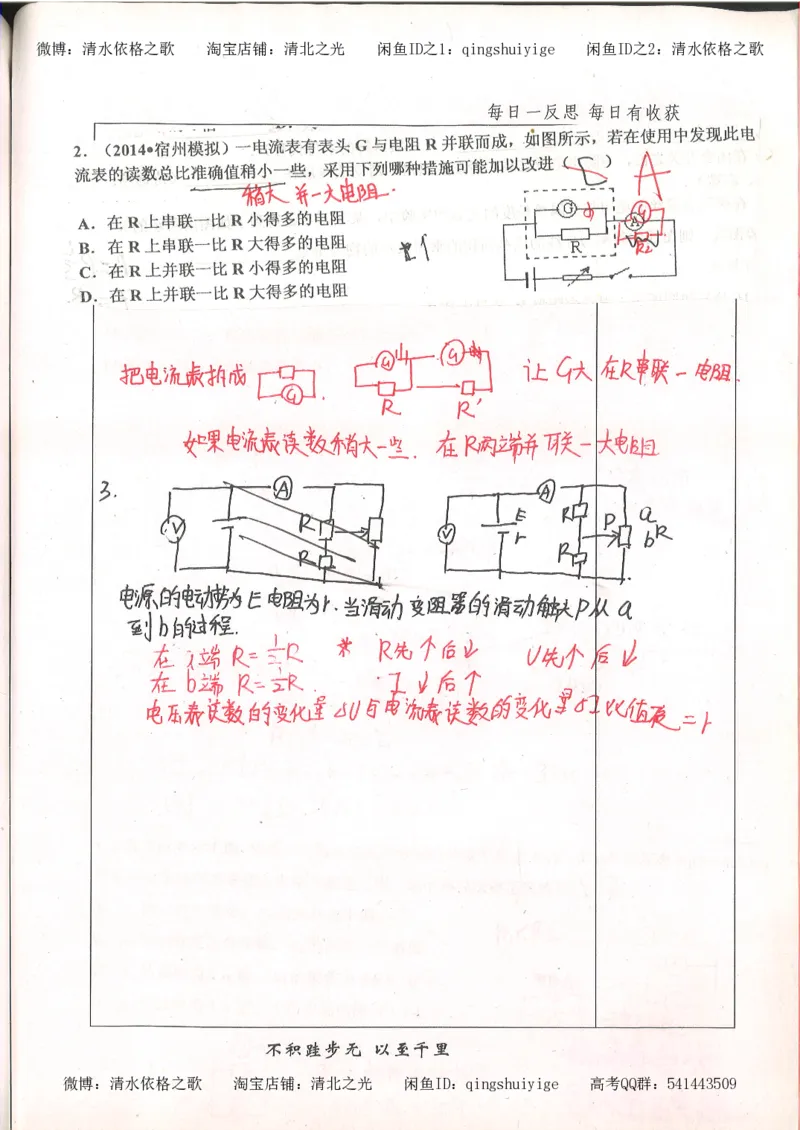 微博：清水依格之歌 淘宝店铺：清北之光 闲鱼ID之1：qingshuiyige 闲鱼ID之2：清水依格之歌
每日一反思 每日有收获
2．（2014•宿州模拟）一电流表有表头 G 与电阻 R 并联而成，如图所示，若在使用中发现此电
流表的读数总比准确值稍小一些，采用下列哪种措施可能加以改进（ ）
A
稍大 并一大电阻.
A．在 R 上串联一比 R 小得多的电阻
B．在 R 上串联一比 R 大得多的电阻
C．在 R 上并联一比 R 小得多的电阻
D．在 R 上并联一比 R 大得多的电阻
G
R
A
R2
把电流表拆成 G . G R G R' 让 G大 在R串联一电阻.
如果电流表读数稍大一些. 在R两端并联一大电阻
3.
A
V
R
R
A
V
E
r
R
R
P
a
b
R
电源的电动势为E 电阻为r.当滑动变阻器的滑动触头P从a
到b的过程.
R先↑后↓ U先↑后↓
在b端 R=½R. I↓后↑
电压表读数的变化量ΔU与电流表读数的变化量ΔI比值 =r
不积跬步无 以至千里
微博：清水依格之歌 淘宝店铺：清北之光 闲鱼ID：qingshuiyige 高考QQ群：541443509